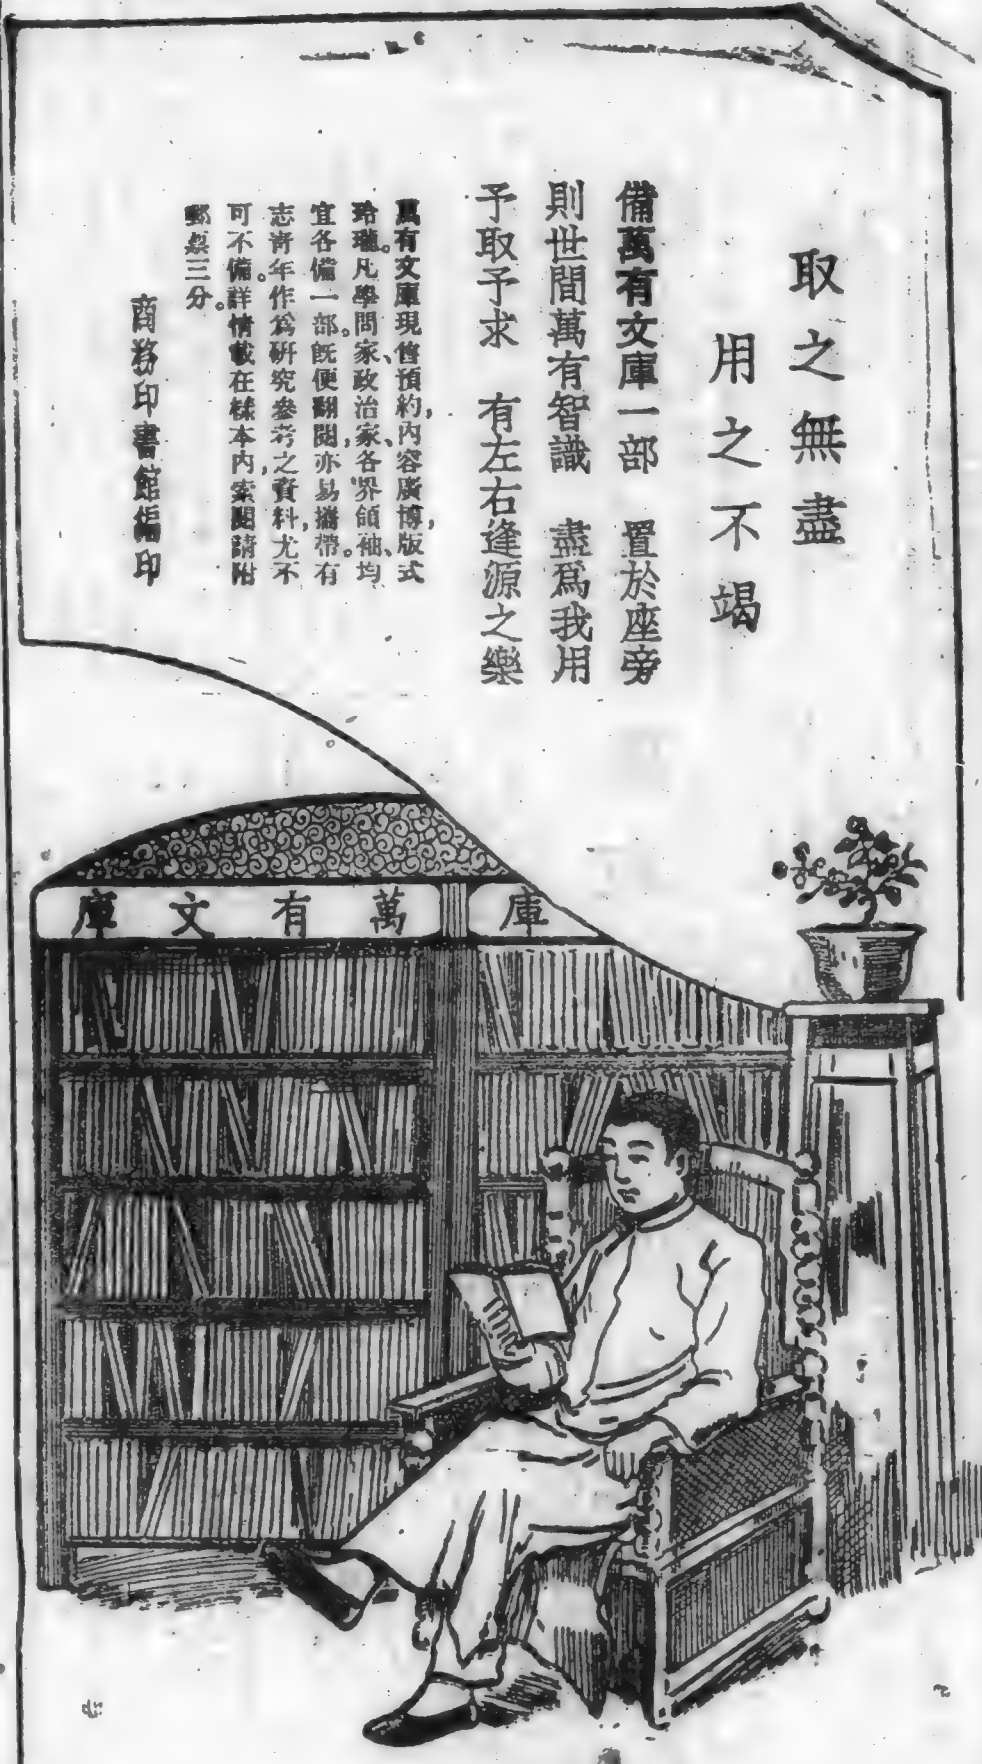 取之無盡
用之不竭
備萬有文庫一部　置於座旁
則世間萬有智識　盡爲我用
予取予求　有左右逢源之樂
萬有文庫現售預約，內容廣博，版式
玲瓏。凡學問家、政治家、各界領袖、均
宜各備一部。旣便翻閱，亦易攜帶。有
志青年作爲硏究參考之資料，尤不
可不備。詳情載在樣本內，索閱請附
郵票三分。
商務印書館編印
萬有文庫
庫